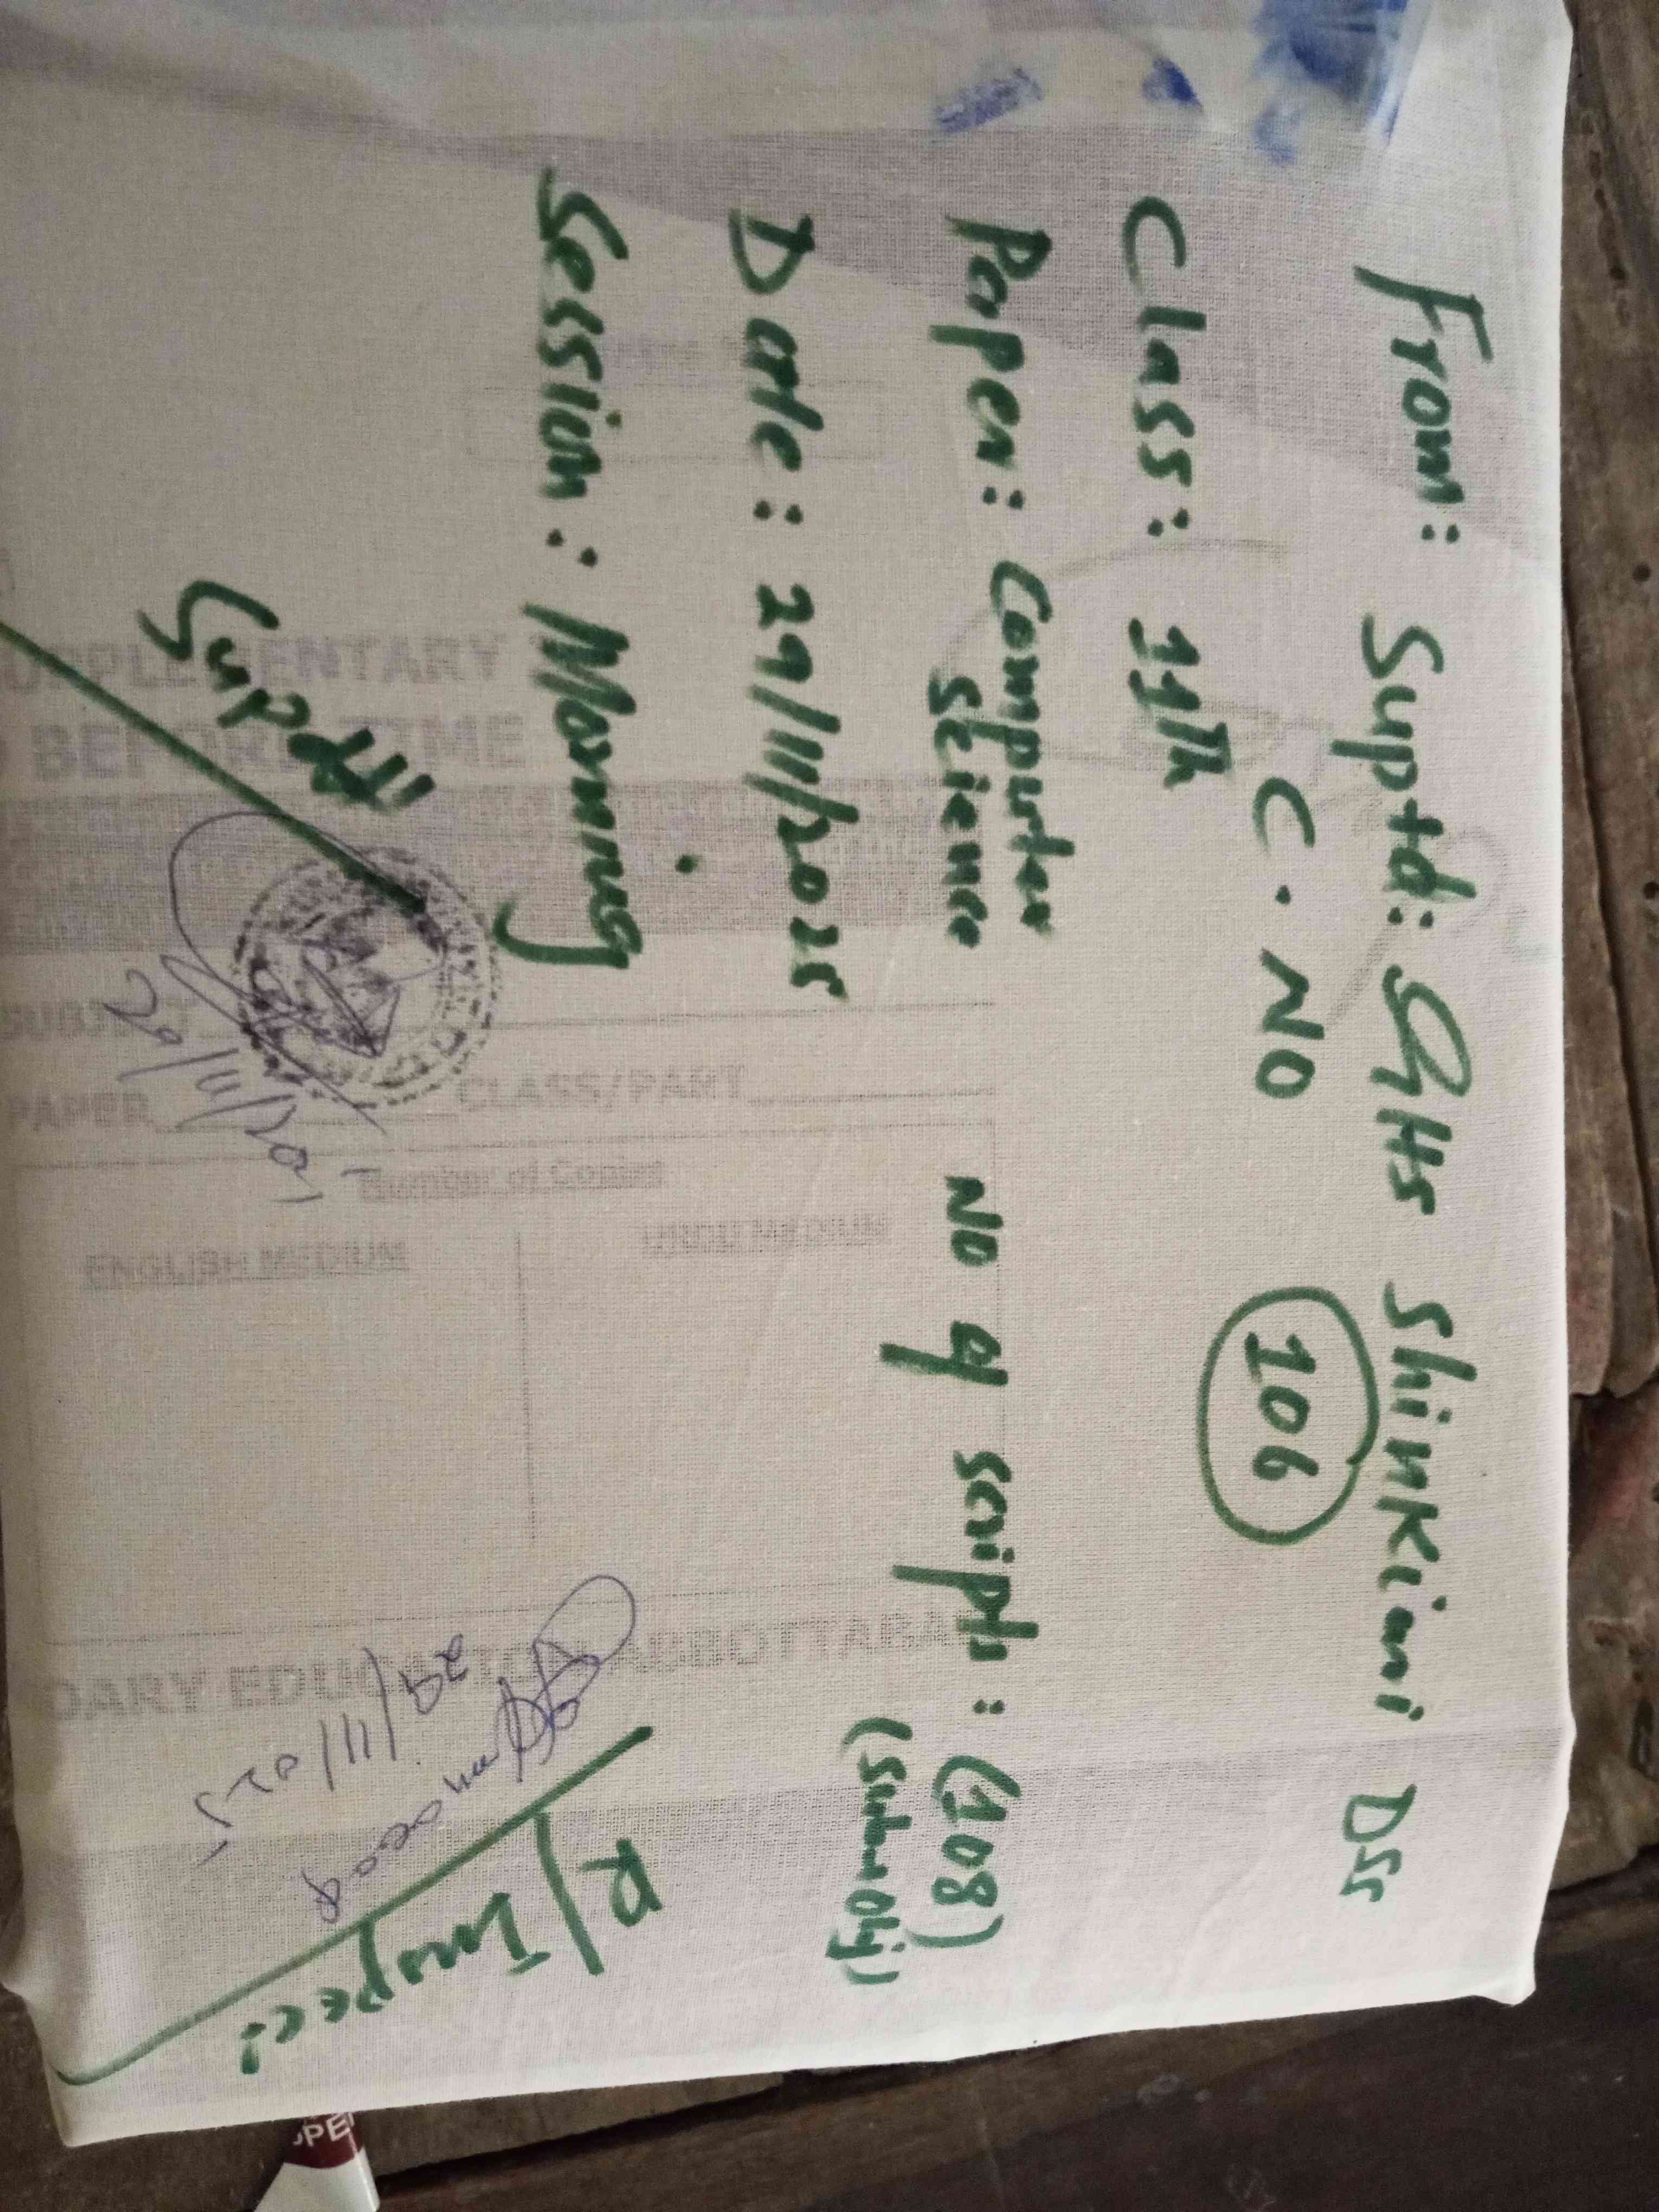 From: Suptd: GHS Shinkiari DSS
C. NO 106
Class: 11th
Paper: Computer Science
No of scripts: (108)
(Sub and Obj)
Date: 29/11/2025
Session: Morning
Supdtt
29/11/025
R/Inspec:
29/11/025
UPPLEMENTARY
BEFORE TIME
SUBJECT
PAPER CLASS/PART
Number of Copies
ENGLISH MEDIUM URDU MEDIUM
DARY EDUCATION ABBOTTABA
OPE